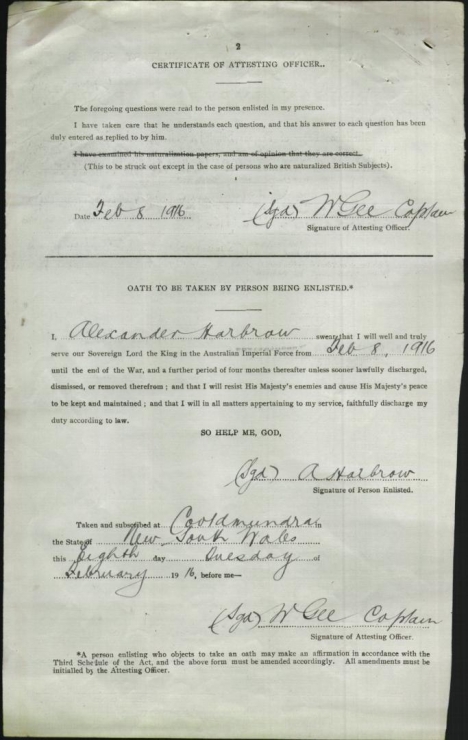 2
CERTIFICATE OF ATTESTING OFFICER..
The foregoing questions were read to the person enlisted in my presence.
I have taken care that he understands each question, and that his answer to each question has been
duly entered as replied to by him.
I have examined his naturalisation papers, and am of opinion that they are correct.
(This to be struck out except in the case of persons who are naturalized British Subjects).
Date Feb 8 1916 (Sgd) W Gee Captain
Signature of Attesting Officer.
OATH TO BE TAKEN BY PERSON BEING ENLISTED.*
I, Alexander Harbrow swear that I will well and truly
serve our Sovereign Lord the King in the Australian Imperial Force from Feb 8, 1916
until the end of the War, and a further period of four months thereafter unless sooner lawfully discharged,
dismissed, or removed therefrom; and that I will resist His Majesty's enemies and cause His Majesty's peace
to be kept and maintained; and that I will in all matters appertaining to my service, faithfully discharge my
duty according to law.
SO HELP ME, GOD,
(Sgd) A Harbrow
Signature of Person Enlisted.
Taken and subscribed at Cootamundra in
the State of New South Wales
this Eighth day Tuesday of
February 1916, before me—
(Sgd) W Gee Captain
Signature of Attesting Officer.
*A person enlisting who objects to take an oath may make an affirmation in accordance with the
Third Schedule of the Act, and the above form must be amended accordingly. All amendments must be
initialled by the Attesting Officer.